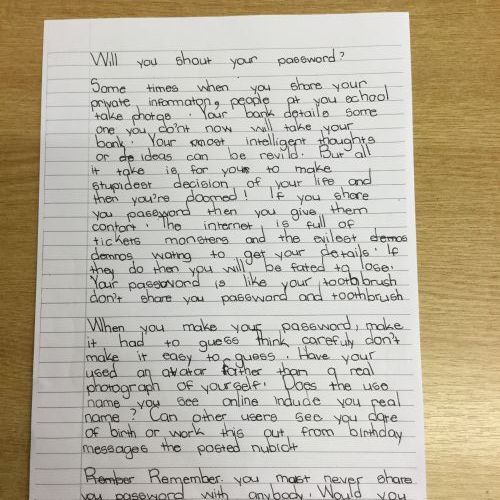 Will you shout your password?
Some times when you share your
private informaton, people at you school
take photos. Your bank details some
one you do'nt now will take your
bank. Your most intelligent thoughts
or ideas can be revild. But all
it take is for you to make
stupidest decision of your life and
then you're doomed! If you share
you password then you give them
contorl. The internet is full of
tickers monsters and the evilest demos
demnos wating to get your details. If
they do then you will be fated to lose.
Your password is like your toothbrush
don't share you password and toothbrush
When you make your password, make
it had to guess think carefuly don't
make it easy to guess. Have your
used an avatar father than a real
photograph of yourself. Does the use
name you see online indude you real
name? Can other users see you date
of birth or work this out from birthday
messages the posted
Remember Remember you most never share
you password with anybody. Would you